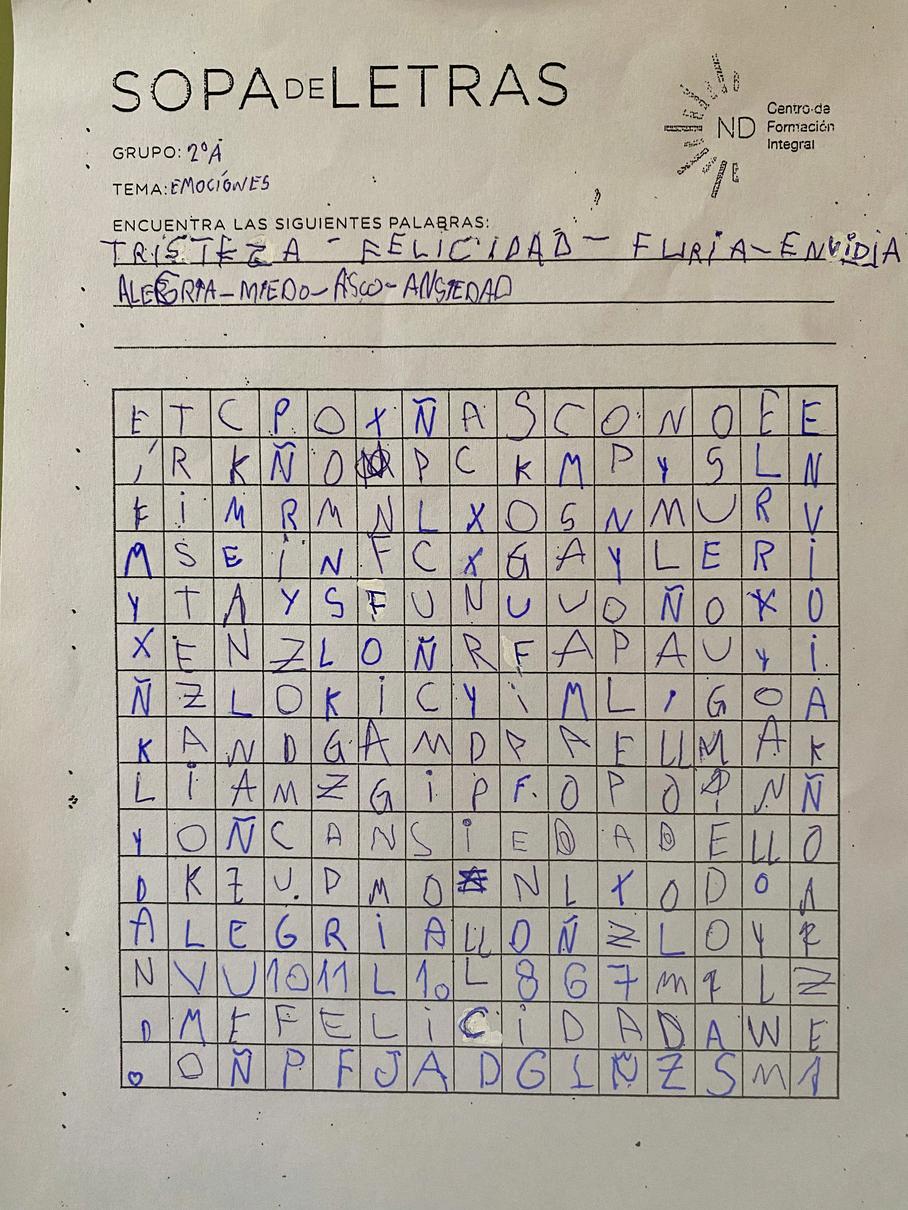 SOPA DE LETRAS
ND Centro de Formación Integral
GRUPO: 2ºA
TEMA: EMOCIÓNES
ENCUENTRA LAS SIGUIENTES PALABRAS:
TRISTEZA - FELICIDAD - FURIA - ENVIDIA
ALEGRIA - MIEDO - ASCO - ANSIEDAD
E T C P O X Ñ A S C O N O E E
R K Ñ O P C K M P Y S L N
F I M R M N L X O S N M U R V
M S E I N F C X G A Y L E R I
Y T A Y S F U N U U O Ñ O X O
X E N Z L O Ñ R F A P A U Y I
Ñ Z L O K I C Y I M L , G O A
K A N D G A M D P A E LL M A K
L I A M Z G I P F. O P O N Ñ
Y O Ñ C A N S I E D A D E LL O
D K Z U. D M O N L X O D O A
A L E G R I A LL O Ñ Z L O Y R
N V U 10 11 L 1. L 8 6 7 M L Z
D M E F E L I C I D A D A W E
O Ñ P F J A D G L Ñ Z S M 1